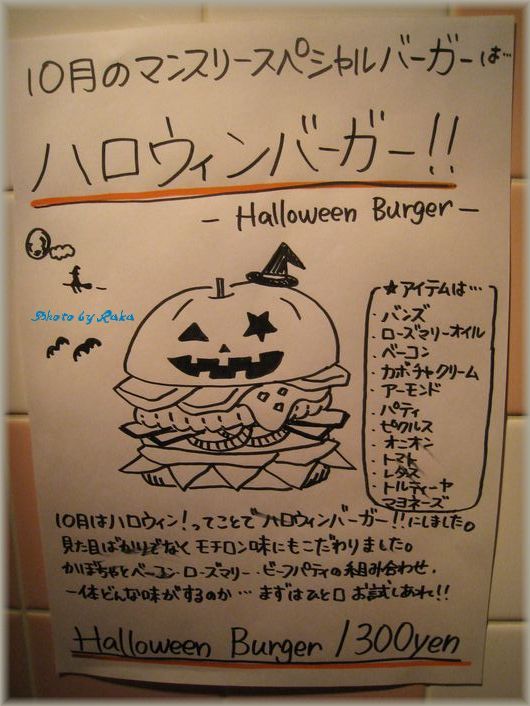 10月のマンスリースペシャルバーガーは…
ハロウィンバーガー!!
- Halloween Burger -
Photo by Raka
★アイテムは…
・バンズ
・ローズマリーオイル
・ベーコン
・カボチャクリーム
・アーモンド
・パティ
・ピクルス
・オニオン
・トマト
・レタス
・トルティーヤ
・マヨネーズ
10月はハロウィン!ってことでハロウィンバーガー!!にしました。
見た目ばかりでなくモチロン味にもこだわりました。
かぼちゃとベーコン・ローズマリー・ビーフパティの組み合わせ.
一体どんな味がするのか…まずはひと口お試しあれ!!
Halloween Burger /300yen